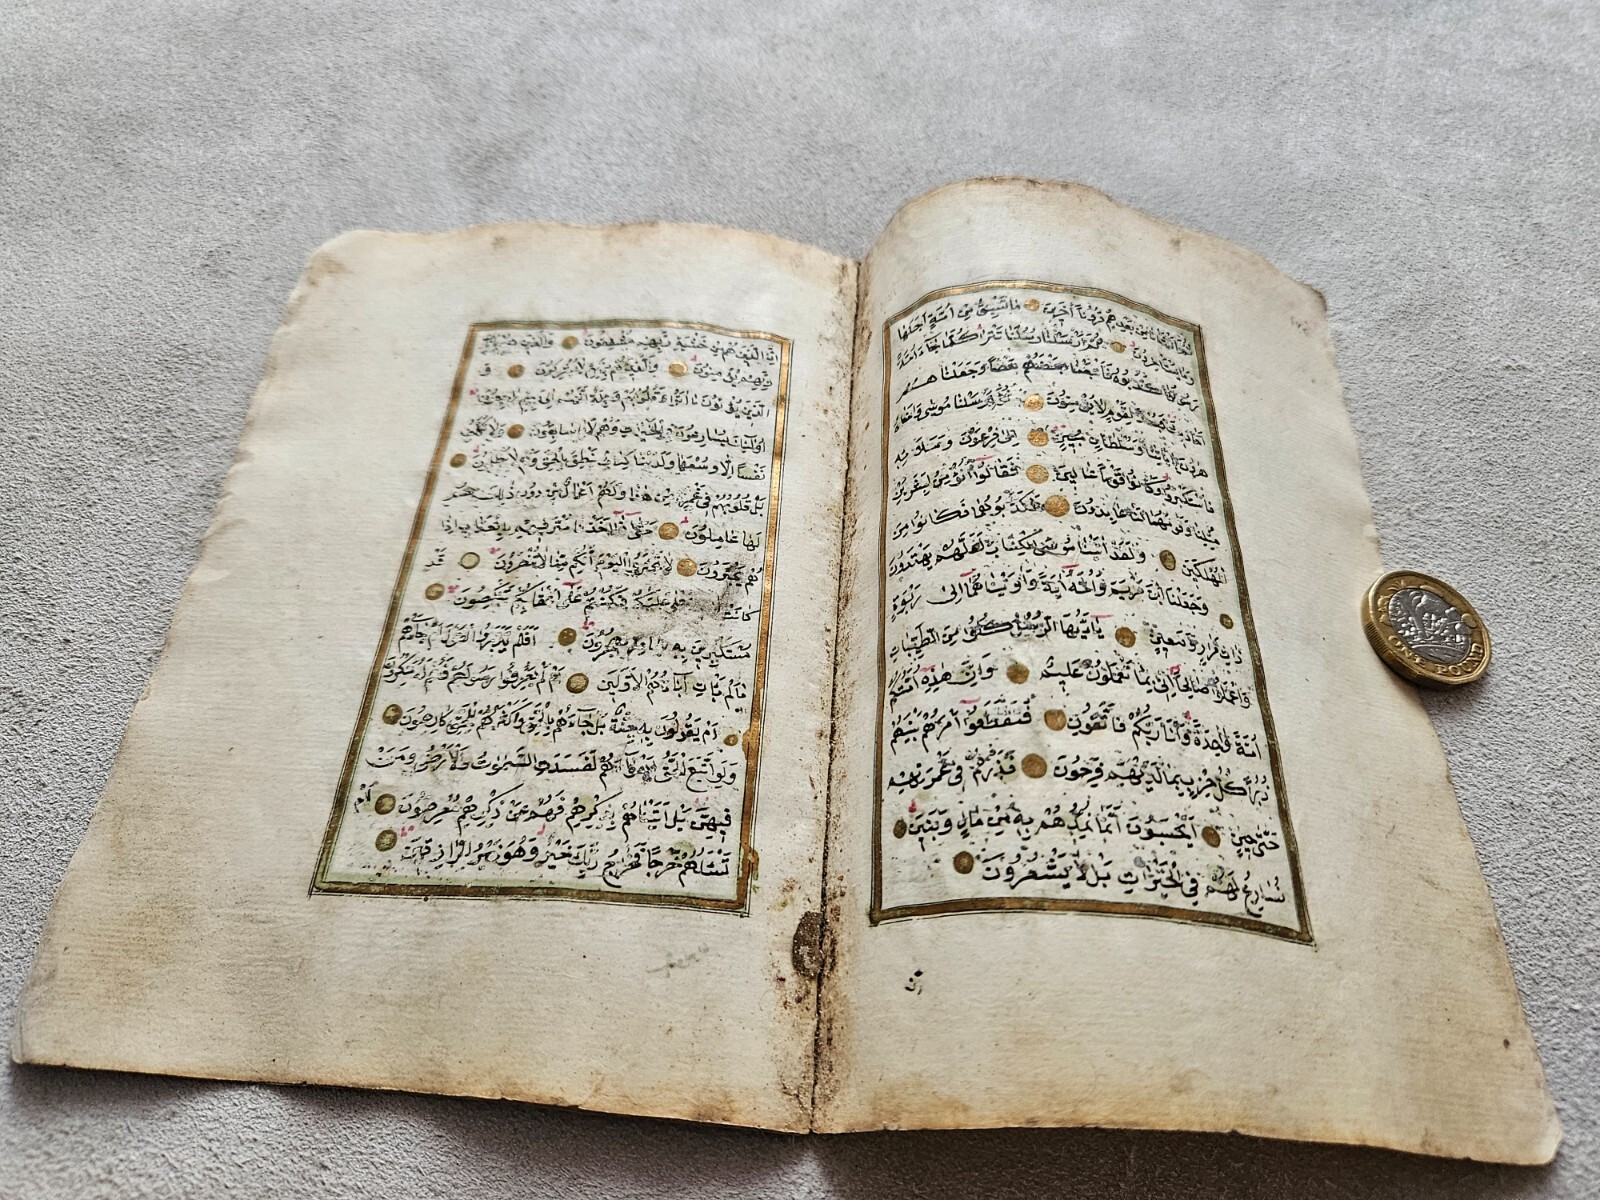 ثُمَّ اَنْشَأْنَا مِنْ بَعْدِهِمْ قُرُونًا اٰخَرِينَ مَا تَسْبِقُ مِنْ اُمَّةٍ اَجَلَهَا
وَمَا يَسْتَأْخِرُونَ ثُمَّ اَرْسَلْنَا رُسُلَنَا تَتْرَا كُلَّمَا جَاءَ اُمَّةً
رَسُولُهَا كَذَّبُوهُ فَاَتْبَعْنَا بَعْضَهُمْ بَعْضًا وَجَعَلْنَاهُمْ
اَحَادِيثَ فَبُعْدًا لِقَوْمٍ لَا يُؤْمِنُونَ ثُمَّ اَرْسَلْنَا مُوسٰى وَاَخَاهُ
هٰرُونَ بِاٰيَاتِنَا وَسُلْطَانٍ مُبِينٍ اِلٰى فِرْعَوْنَ وَمَلَائِهِ
فَاسْتَكْبَرُوا وَكَانُوا قَوْمًا عَالِينَ فَقَالُوا اَنُؤْمِنُ لِبَشَرَيْنِ
مِثْلِنَا وَقَوْمُهُمَا لَنَا عَابِدُونَ فَكَذَّبُوهُمَا فَكَانُوا مِنَ
الْمُهْلَكِينَ وَلَقَدْ اٰتَيْنَا مُوسَى الْكِتَابَ لَعَلَّهُمْ يَهْتَدُونَ
وَجَعَلْنَا ابْنَ مَرْيَمَ وَاُمَّهُ اٰيَةً وَاٰوَيْنَاهُمَا اِلٰى رَبْوَةٍ
ذَاتِ قَرَارٍ وَمَعِينٍ يَا اَيُّهَا الرُّسُلُ كُلُوا مِنَ الطَّيِّبَاتِ
وَاعْمَلُوا صَالِحًا اِنِّي بِمَا تَعْمَلُونَ عَلِيمٌ وَاِنَّ هٰذِهِ اُمَّتُكُمْ
اُمَّةً وَاحِدَةً وَاَنَا رَبُّكُمْ فَاتَّقُونِ فَتَقَطَّعُوا اَمْرَهُمْ بَيْنَهُمْ
زُبُرًا كُلُّ حِزْبٍ بِمَا لَدَيْهِمْ فَرِحُونَ فَذَرْهُمْ فِي غَمْرَتِهِمْ
حَتّٰى حِينٍ اَيَحْسَبُونَ اَنَّمَا نُمِدُّهُمْ بِهِ مِنْ مَالٍ وَبَنِينَ
نُسَارِعُ لَهُمْ فِي الْخَيْرَاتِ بَلْ لَا يَشْعُرُونَ
اِنَّ
اِنَّ الَّذِينَ هُمْ مِنْ خَشْيَةِ رَبِّهِمْ مُشْفِقُونَ وَالَّذِينَ هُمْ بِاٰيَاتِ
رَبِّهِمْ يُؤْمِنُونَ وَالَّذِينَ هُمْ بِرَبِّهِمْ لَا يُشْرِكُونَ وَ
الَّذِينَ يُؤْتُونَ مَا اٰتَوْا وَقُلُوبُهُمْ وَجِلَةٌ اَنَّهُمْ اِلٰى رَبِّهِمْ رَاجِعُونَ
اُولٰئِكَ يُسَارِعُونَ فِي الْخَيْرَاتِ وَهُمْ لَهَا سَابِقُونَ وَلَا نُكَلِّفُ
نَفْسًا اِلَّا وُسْعَهَا وَلَدَيْنَا كِتَابٌ يَنْطِقُ بِالْحَقِّ وَهُمْ لَا يُظْلَمُونَ
بَلْ قُلُوبُهُمْ فِي غَمْرَةٍ مِنْ هٰذَا وَلَهُمْ اَعْمَالٌ مِنْ دُونِ ذٰلِكَ هُمْ
لَهَا عَامِلُونَ حَتّٰى اِذَا اَخَذْنَا مُتْرَفِيهِمْ بِالْعَذَابِ اِذَا
هُمْ يَجْـَٔرُونَ لَا تَجْـَٔرُوا الْيَوْمَ اِنَّكُمْ مِنَّا لَا تُنْصَرُونَ قَدْ
كَانَتْ تُتْلٰى عَلَيْكُمْ فَكُنْتُمْ عَلٰى اَعْقَابِكُمْ تَنْكِصُونَ
مُسْتَكْبِرِينَ بِهِ سَامِرًا تَهْجُرُونَ اَفَلَمْ يَدَّبَّرُوا الْقَوْلَ اَمْ جَاءَهُمْ
مَا لَمْ يَأْتِ اٰبَاءَهُمُ الْاَوَّلِينَ اَمْ لَمْ يَعْرِفُوا رَسُولَهُمْ فَهُمْ لَهُ مُنْكِرُونَ
اَمْ يَقُولُونَ بِهِ جِنَّةٌ بَلْ جَاءَهُمْ بِالْحَقِّ وَاَكْثَرُهُمْ لِلْحَقِّ كَارِهُونَ
وَلَوِ اتَّبَعَ الْحَقُّ اَهْوَاءَهُمْ لَفَسَدَتِ السَّمٰوَاتُ وَالْاَرْضُ وَمَنْ
فِيهِنَّ بَلْ اَتَيْنَاهُمْ بِذِكْرِهِمْ فَهُمْ عَنْ ذِكْرِهِمْ مُعْرِضُونَ اَمْ
تَسْئَلُهُمْ خَرْجًا فَخَرَاجُ رَبِّكَ خَيْرٌ وَهُوَ خَيْرُ الرَّازِقِينَ